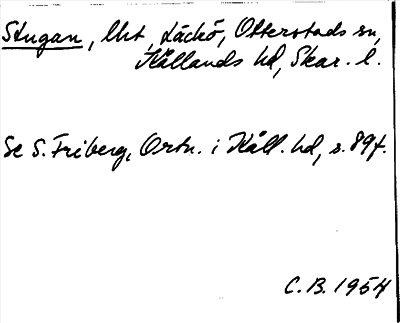 Stugan, lht, Läckö, Otterstads sn,
Kållands hd, Skar. l.
Se S. Friberg, Ortn. i Kåll. hd, s. 89f.
C.B. 1954